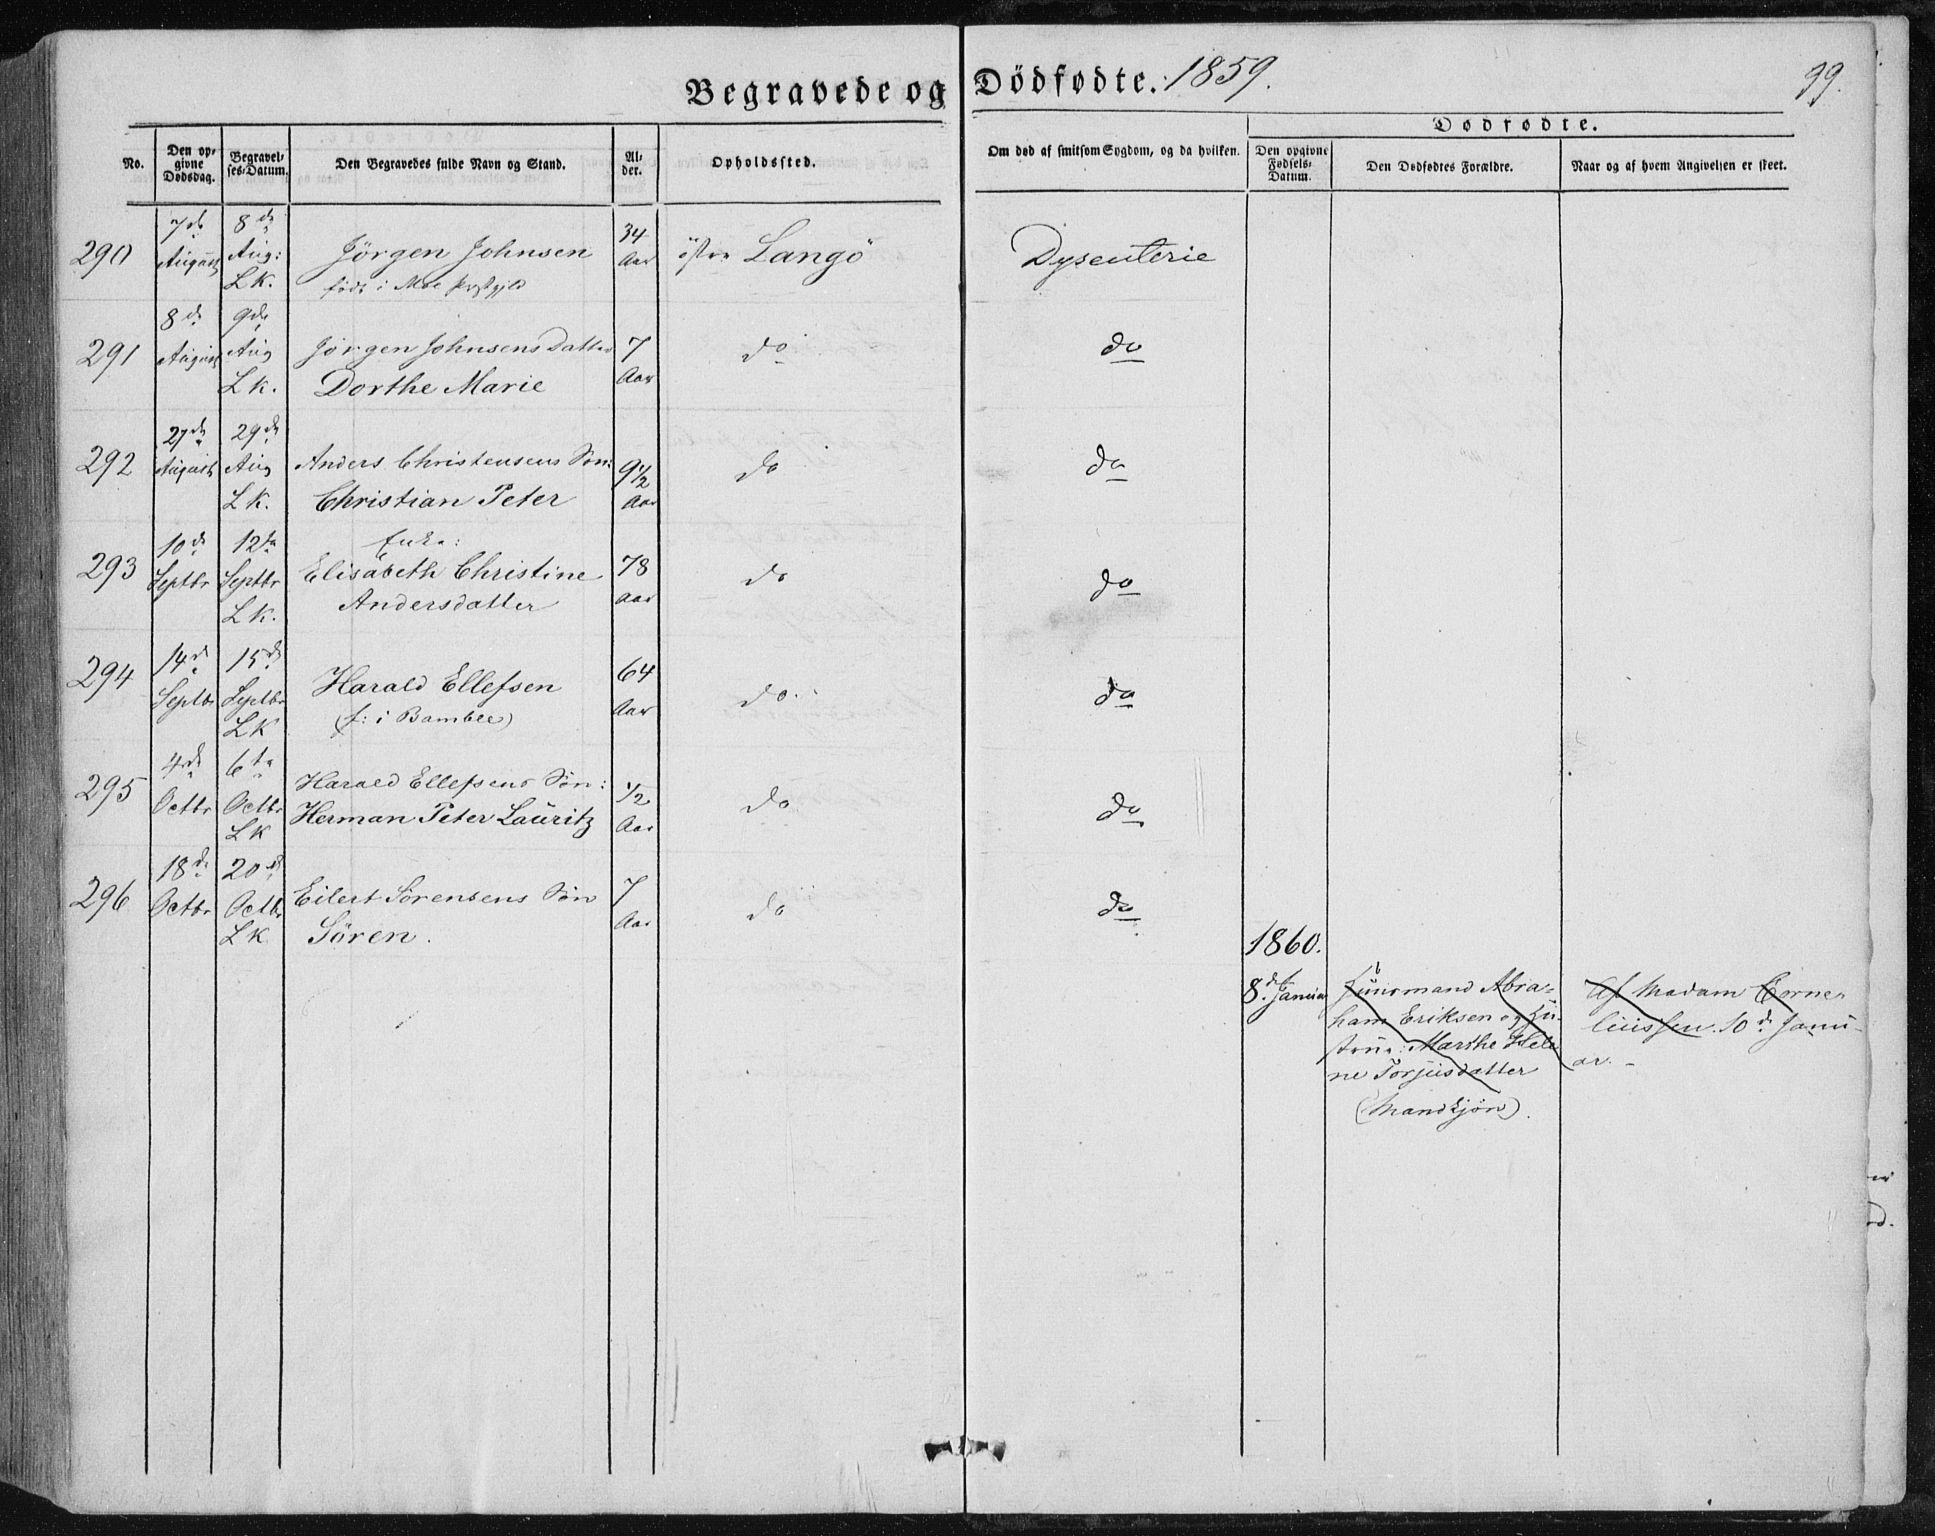 Begravede og Dödfødte. 1859.
99.
No.
Den opgivne Dødsdag.
Begravelses-Datum.
Den Begravedes fulde Navn og Stand.
Alder.
Opholdssted.
Om død af smitsom Sygdom, og da hvilken.
Dødfødte.
Den opgivne Fødsels-Datum.
Den Dødfødtes Forældre.
Naar og af hvem Angivelsen er skeet.
290 7de August 8de Aug: L K. Jörgen Johnsen 34 Aar östre Langö Dysenterie
født i Moe Prstgjld
291 8de August 9de Aug L K. Jörgen Johnsens Datter 7 Aar do do
Dorthe Marie
292 27de August 29de Aug L K. Anders Christensens Sön: 9 1/2 Aar do do
Christian Peter
293 10de Septbr 12te Septbr L K. Enke: 78 Aar do do
Elisabeth Christine
Andersdatter
294 14de Septbr 15de Septbr L K Harald Ellefsen 64 Aar do. do
(f: i Bamble)
295 4de Octbr 6te Octbr L K Harald Ellefsens Sön: 1/2 Aar do do
Herman Peter Lauritz
296 18de Octbr 20de Octbr L K. Eilert Sörensens Sön 7 Aar do do
Sören.
1860.
8de Januar
Huusmand Abra-
ham Eriksen og Hu-
strue: Marthe Hele
ne Torjusdatter
(Mandkjön).
Af Madam Corne-
liussen. 10de Janu-
ar.